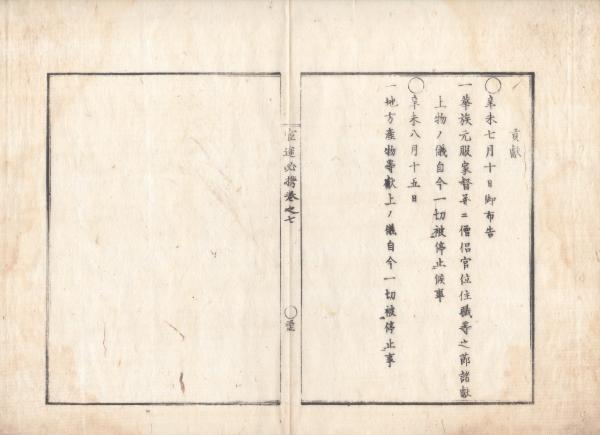 貢献
◯辛未七月十日御布告
一華族元服家督並ニ僧侶官位住職等之節諸献
上物ノ儀自今一切被停止候事
◯辛未八月十五日
一地方産物等献上ノ儀自今一切被停止事
官途必携巻之七
◯